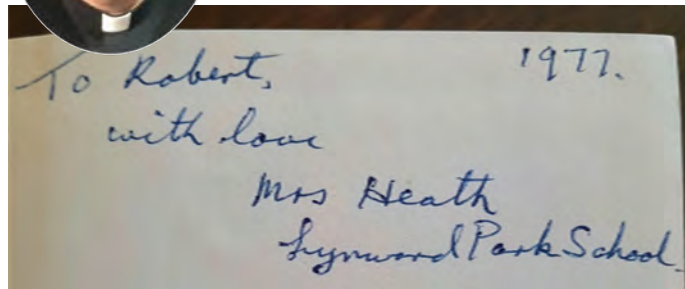 To Robert, 1977.
with love
Mrs Heath
Lynward Park School.